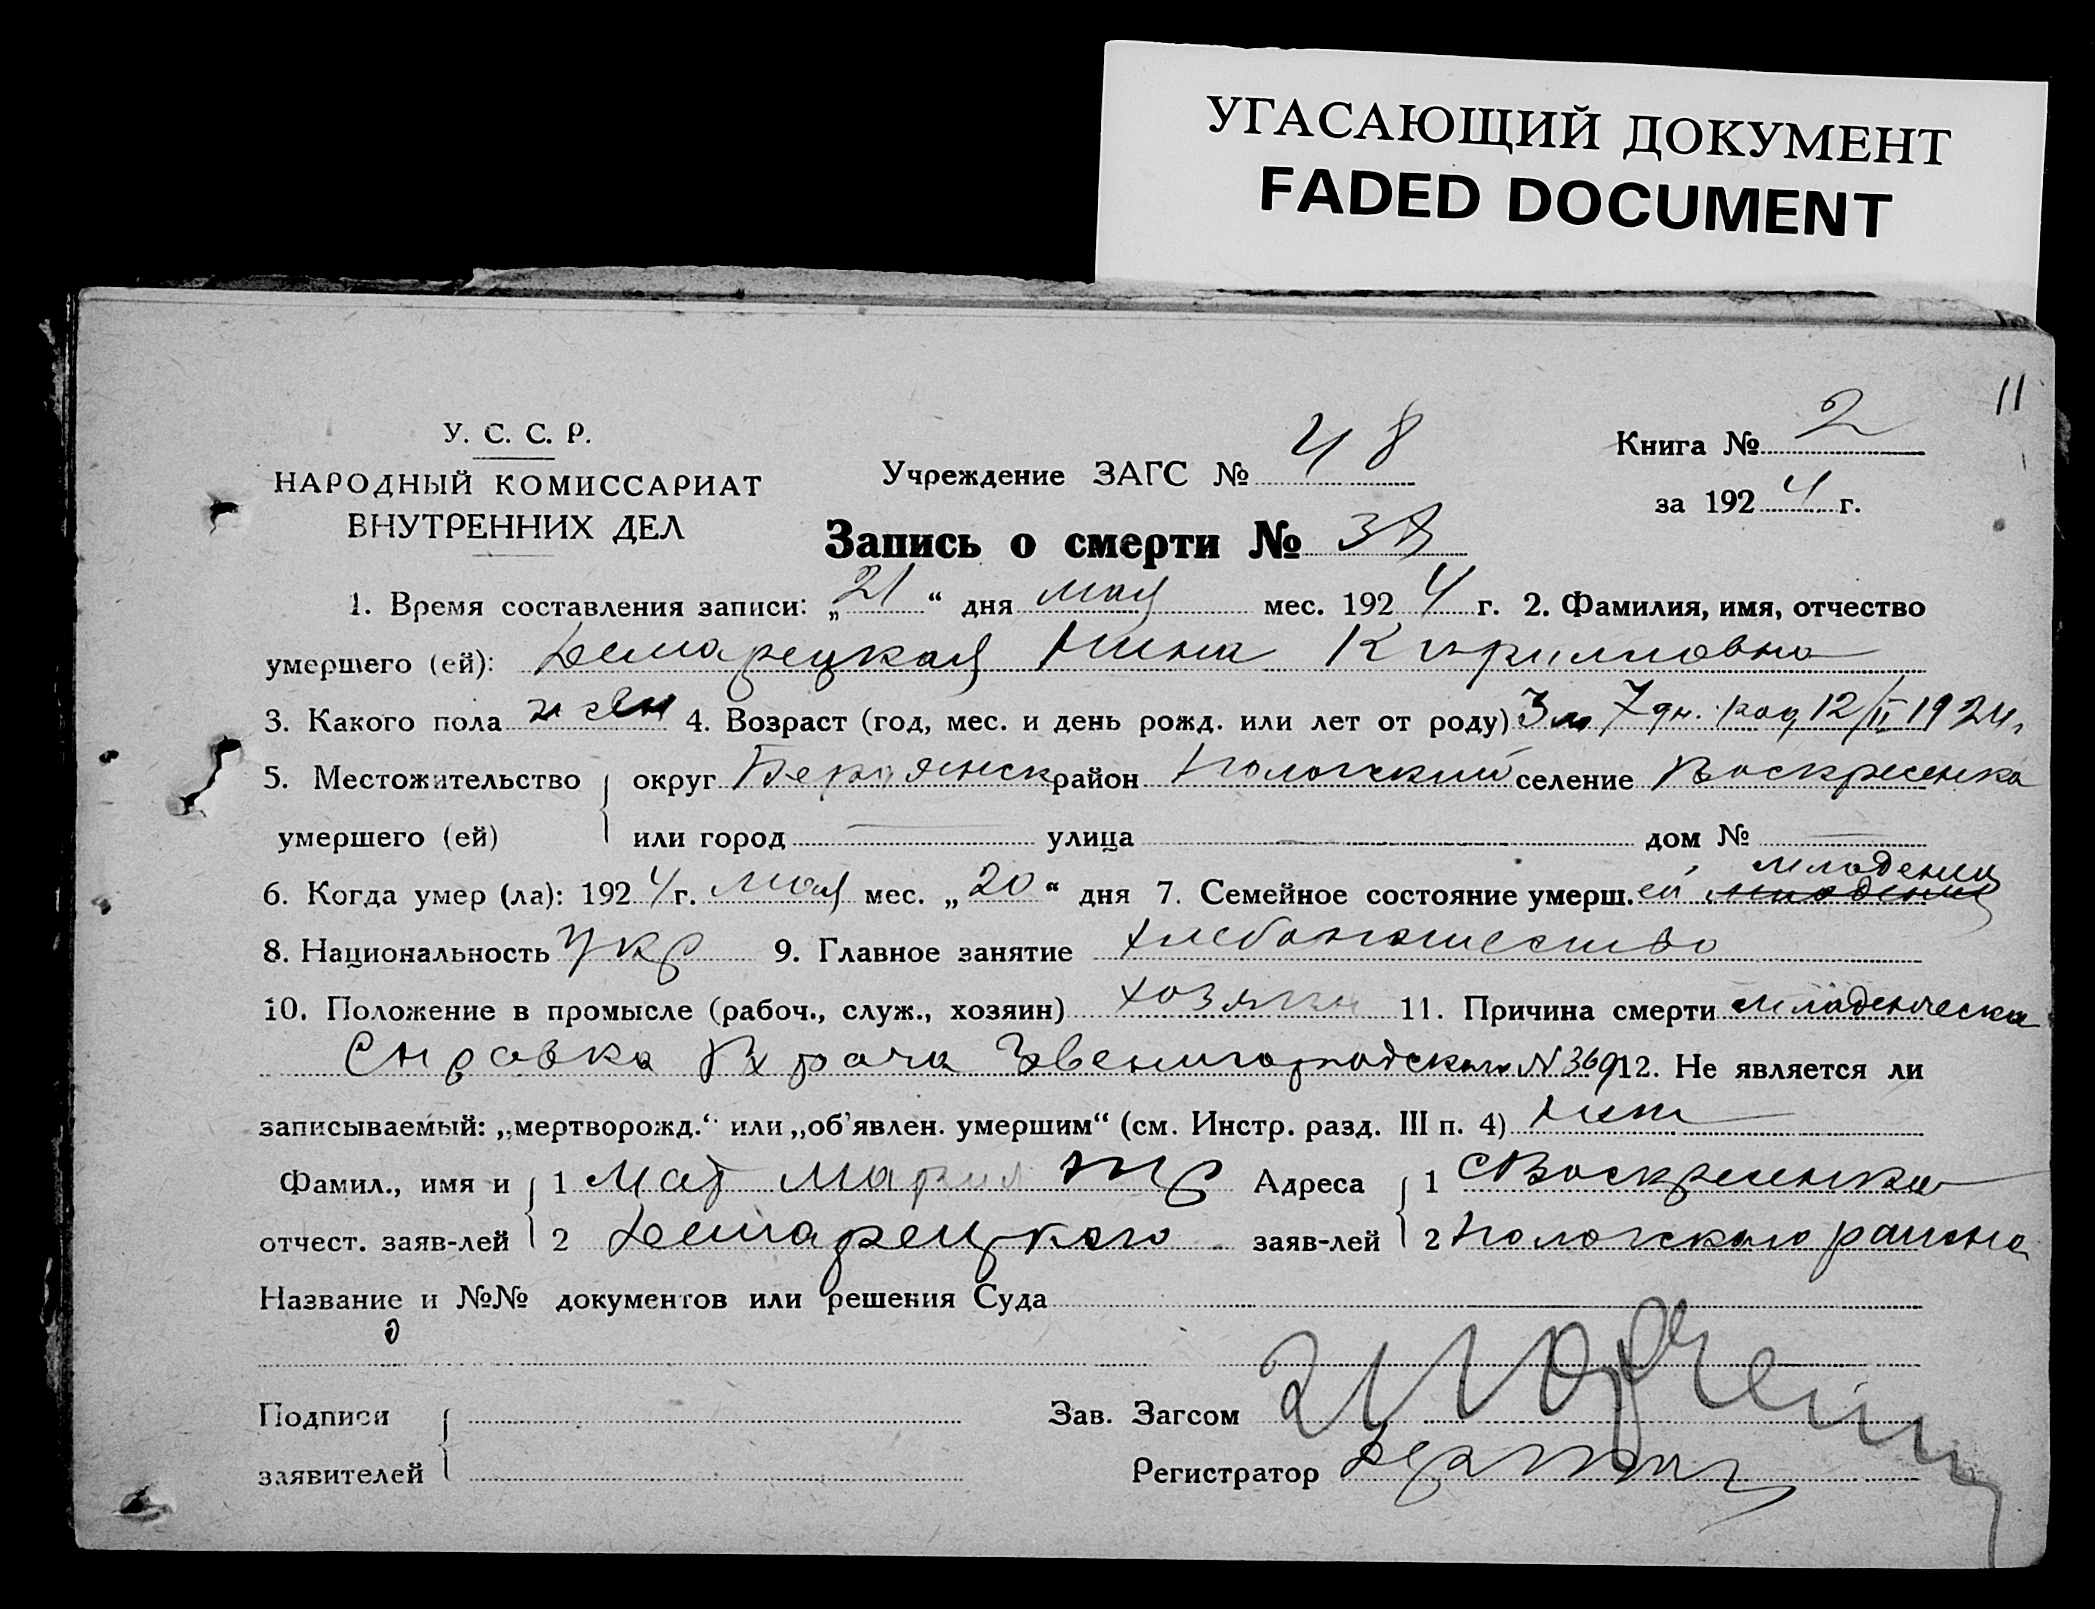 УГАСАЮЩИЙ ДОКУМЕНТ
FADED DOCUMENT
11
У. С. С. Р.
НАРОДНЫЙ КОМИССАРИАТ
ВНУТРЕННИХ ДЕЛ
Учреждение ЗАГС № 48
Книга № 2
за 1924 г.
Запись о смерти №
1. Время составления записи: „21“ дня мая мес. 1924 г. 2. Фамилия, имя, отчество
умершего (ей): Демарецкая Нина Кирилловна
3. Какого пола жен 4. Возраст (год, мес. и день рожд. или лет от роду) 3 м 7 дн. 12/II 1924 г.
5. Местожительство округ Бердянск район Пологский селение Воскресенка
умершего (ей) или город улица дом №
младенец
6. Когда умер (ла): 1924 г. мая мес. „20“ дня 7. Семейное состояние умерш. ей младенец
8. Национальность укр 9. Главное занятие хлебопашество
10. Положение в промысле (рабоч., служ., хозяин) хозяин 11. Причина смерти младенческа
Справка Врача Звенигородского N 369 12. Не является ли
записываемый: „мертворожд.“ или „об’явлен. умершим“ (см. Инстр. разд. III п. 4) нет
Фамил., имя и 1 Мат Мария Адреса 1 с Воскресенка
отчест. заяв-лей 2 Демарецкого заяв-лей 2 Пологского района
Название и №№ документов или решения Суда
Подписи Зав. Загсом
заявителей Регистратор